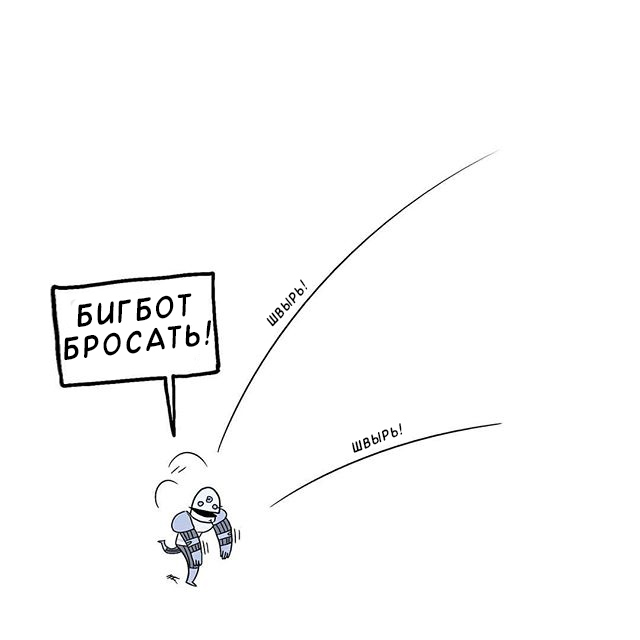 БИГБОТ
БРОСАТЬ!
ШВЫРЬ!
ШВЫРЬ!